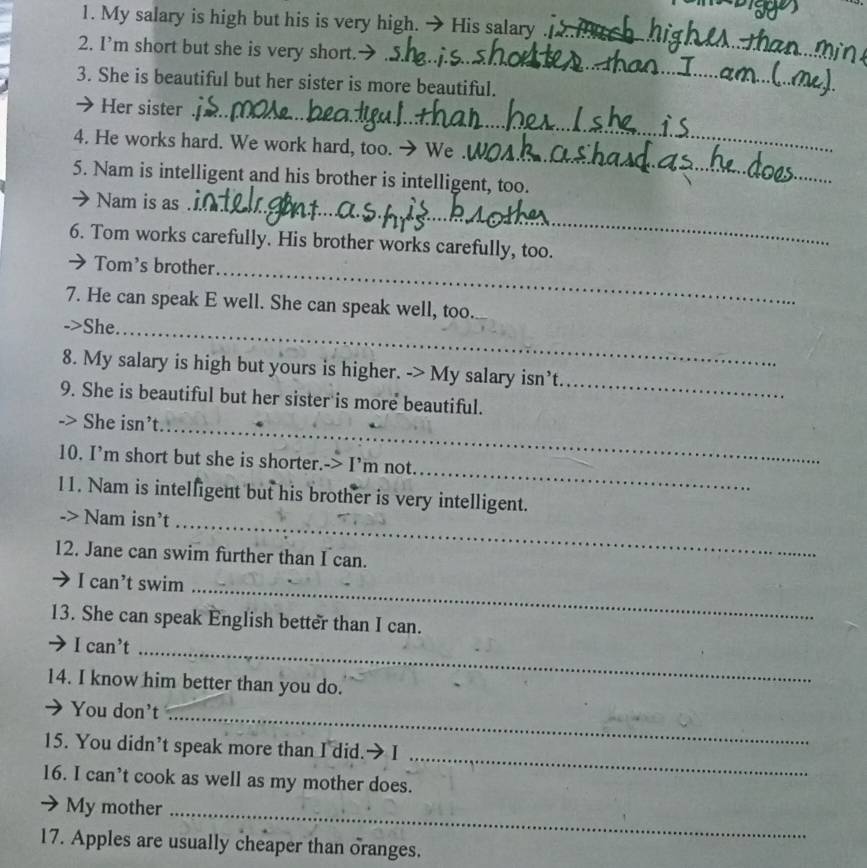 bigger)
1. My salary is high but his is very high. → His salary is much higher than mine
2. I'm short but she is very short.→ she is shorter than I am (me).
3. She is beautiful but her sister is more beautiful.
→ Her sister is more beatiful than her / she is
4. He works hard. We work hard, too. → We work as hard as he does
5. Nam is intelligent and his brother is intelligent, too.
→ Nam is as intelrgent as his brother
6. Tom works carefully. His brother works carefully, too.
→ Tom's brother
7. He can speak E well. She can speak well, too.
->She
8. My salary is high but yours is higher. -> My salary isn't
9. She is beautiful but her sister is more beautiful.
-> She isn't
10. I'm short but she is shorter.-> I'm not
11. Nam is intelligent but his brother is very intelligent.
-> Nam isn't
12. Jane can swim further than I can.
→ I can't swim
13. She can speak English better than I can.
→ I can't
14. I know him better than you do.
→ You don't
15. You didn't speak more than I did.→ I
16. I can't cook as well as my mother does.
→ My mother
17. Apples are usually cheaper than oranges.